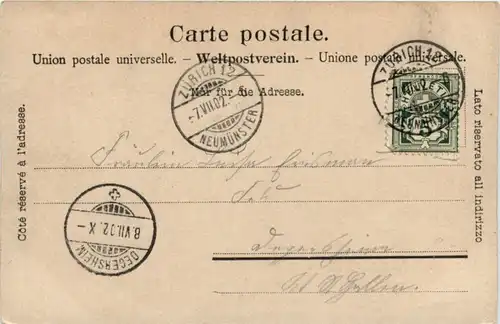 Carte postale.
Union postale universelle. – Weltpostverein. – Unione postale universale.
Nur für die Adresse.
Côté réservé à l'adresse.
Lato riservato all'indirizzo
ZÜRICH 12
-7.VII.02.
NEUMÜNSTER
ZÜRICH 12
NEUMÜNSTER
Fräulein
Degersheim
Kt. St. Gallen.
8.VII.02.X-
DEGERSHEIM